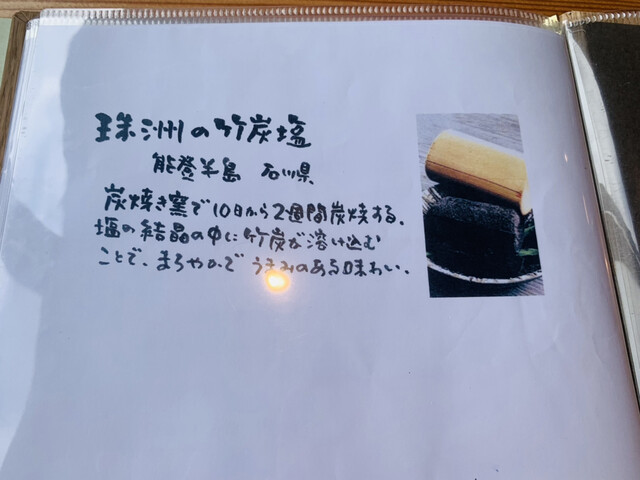 珠洲の竹炭塩
能登半島 石川県
炭焼き窯で10日から2週間炭焼する。
塩の結晶の中に竹炭が溶け込む
ことで、まろやかで うまみのある味わい。